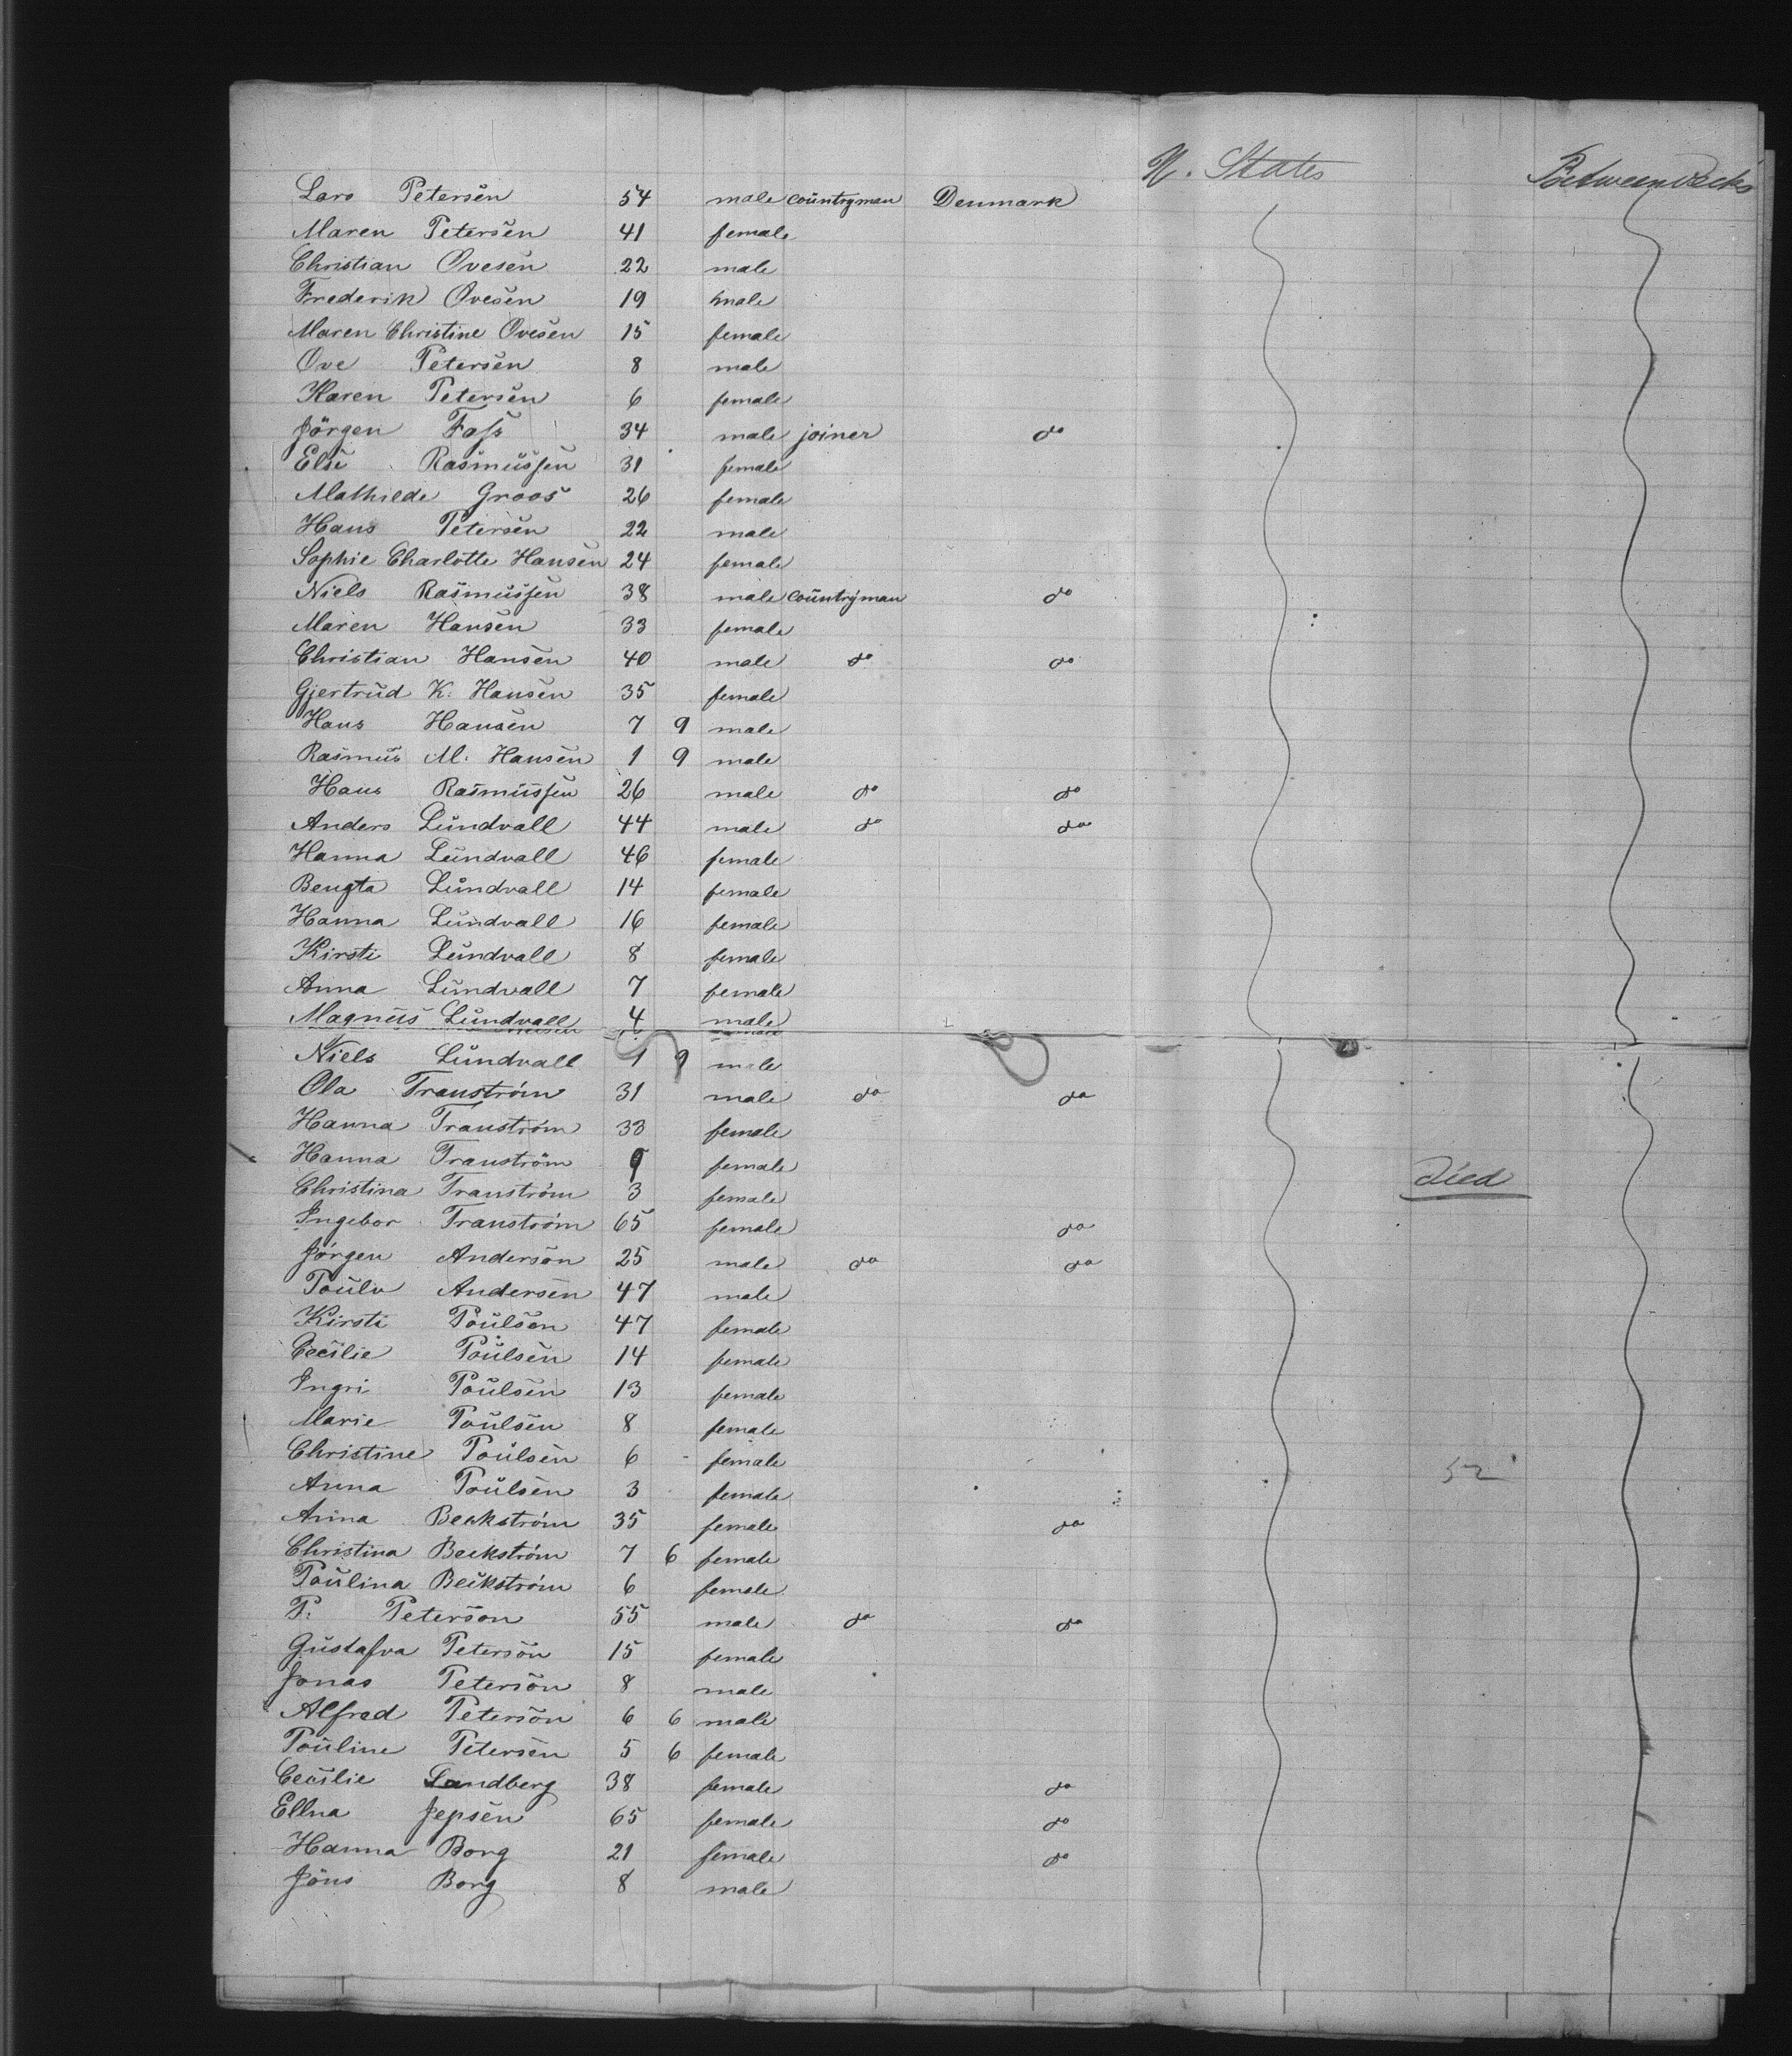 U. States Betweendecks
Lars Petersen 54 male countryman Denmark
Maren Petersen 41 female
Christian Ovesen 22 male
Frederik Ovesen 19 male
Maren Christine Ovesen 15 female
Ove Petersen 8 male
Karen Petersen 6 female
Jörgen Fass 34 male joiner do
Else Rasmussen 31 female
Mathilde Groos 26 female
Hans Petersen 22 male
Sophie Charlotte Hansen 24 female
Niels Rasmussen 38 male countryman do
Maren Hansen 33 female
Christian Hansen 40 male do do
Gjertrud K. Hansen 35 female
Hans Hansen 7 9 male
Rasmus M. Hansen 1 9 male
Hans Rasmussen 26 male do do
Anders Lundvall 44 male do do
Hanna Lundvall 46 female
Bengta Lundvall 14 female
Hanna Lundvall 16 female
Kirsti Lundvall 8 female
Anna Lundvall 7 female
Magnus Lundvall 4 male
Niels Lundvall 1 9 male
Ola Tranström 31 male do do
Hanna Tranström 33 female
Hanna Tranström 9 female Died
Christina Tranström 3 female
Ingebor Tranström 65 female do
Jörgen Anderson 25 male do do
Poulv Andersen 47 male
Kirsti Poulsen 47 female
Cecilie Poulsen 14 female
Ingri Poulsen 13 female
Marie Poulsen 8 female
Christine Poulsen 6 female 52
Anna Poulsen 3 female
Anna Beckström 35 female do
Christina Beckström 7 6 female
Poulina Beckström 6 female
P. Peterson 55 male do do
Gustafva Peterson 15 female
Jonas Peterson 8 male
Alfred Peterson 6 6 male
Pouline Petersen 5 6 female
Cecilie Sandberg 38 female do
Ellna Jepsen 65 female do
Hanna Borg 21 female do
Jöns Borg 8 male